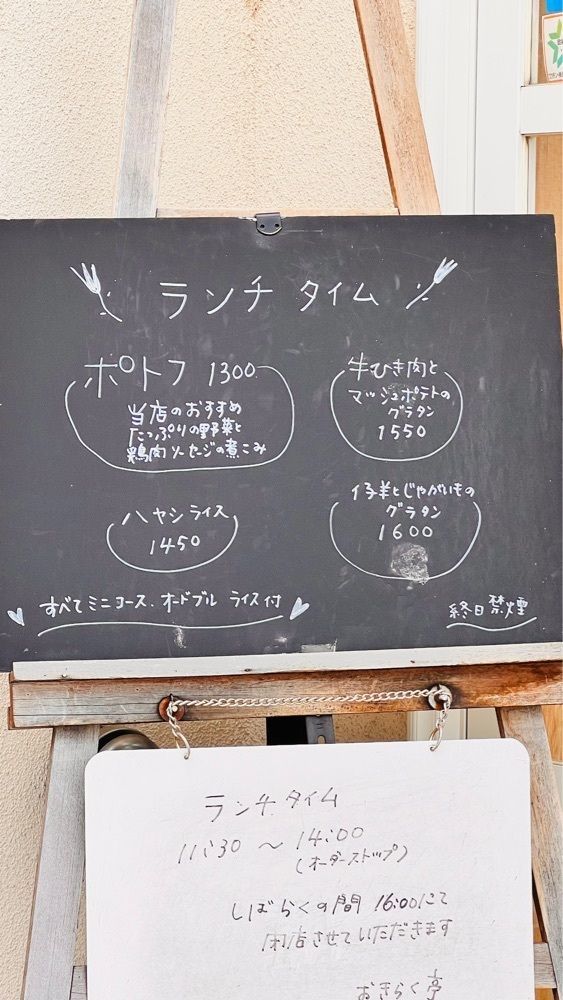 ランチ タイム
ポトフ 1300
当店のおすすめ
たっぷりの野菜と
鶏肉ソーセージの煮こみ
牛ひき肉と
マッシュポテトの
グラタン
1550
ハヤシライス
1450
仔羊とじゃがいもの
グラタン
1600
すべてミニコース.オードブル ライス付
終日禁煙
ランチタイム
11:30 〜 14:00
(オーダーストップ)
しばらくの間 16:00にて
閉店させていただきます
おきらく亭